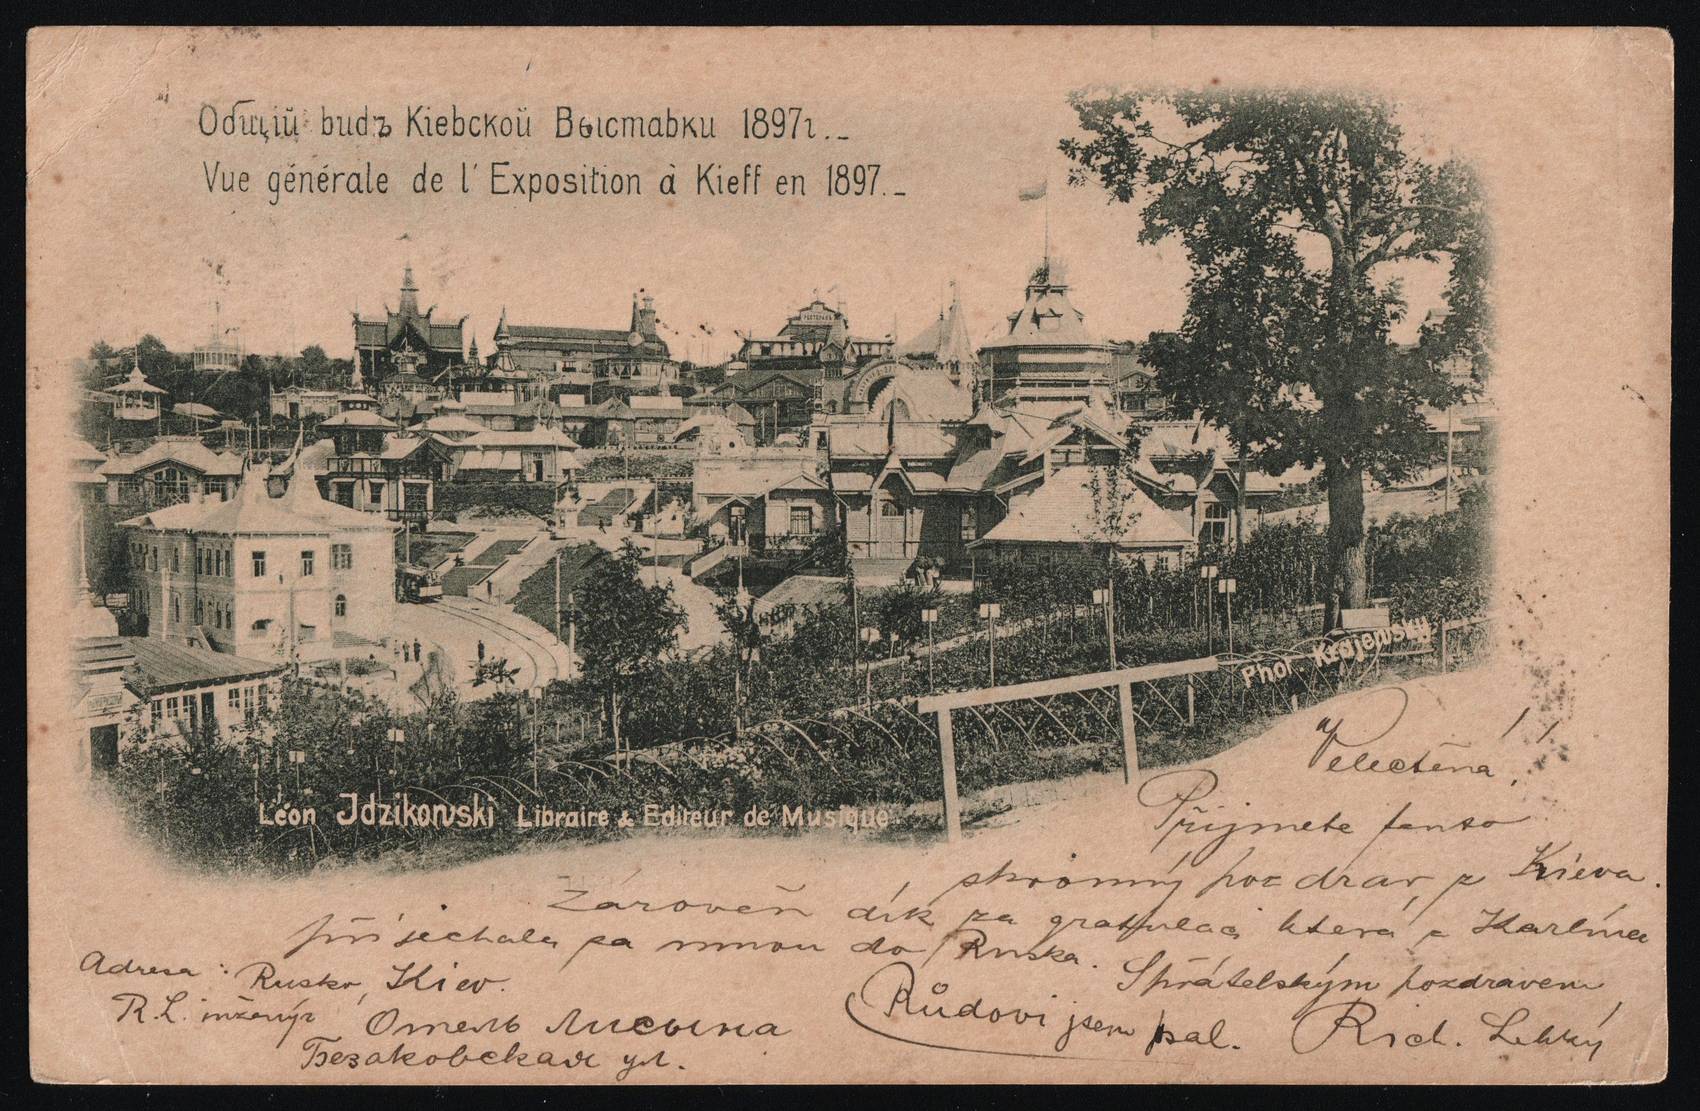 Общій видъ Кіевской Выставки 1897г.
Vue générale de l' Exposition à Kieff en 1897.
РЕСТОРАНЪ
Phot Krajewsky
Léon Idzikowski Libraire & Editeur de Musique
Velectěná
Přijmete tento
skromný pozdrav z Kieva.
Zároveň dík za gratulaci která z Karlína
přijechala za mnou do Ruska.
Spřátelským pozdravem
Adresa: Rusko, Kiev.
R.L. inženýr Отель Лисьina
Безаковская ул.
Růdovi jsem psal. Rich. Lehký